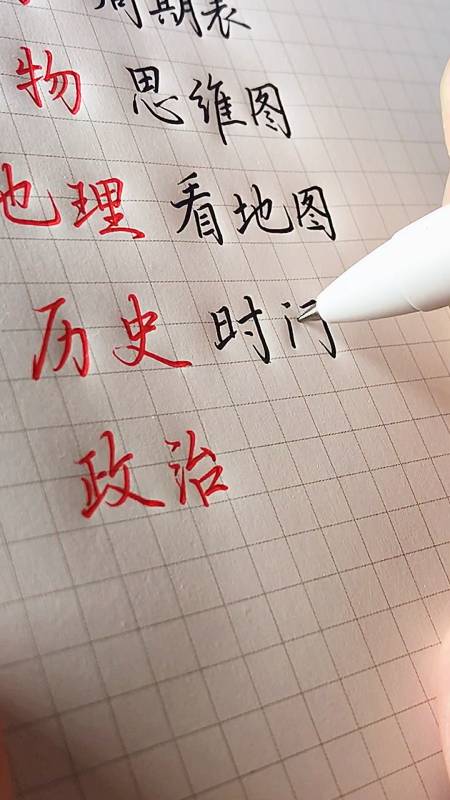 周期表
物 思维图
地理 看地图
历史 时门
政治